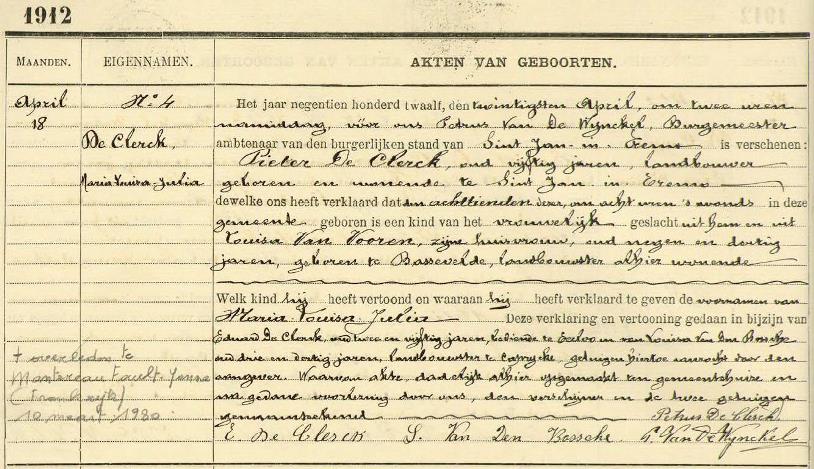 1912
MAANDEN.
EIGENNAMEN.
AKTEN VAN GEBOORTEN.
April
18
No. 4
De Clerck,
Maria Louisa Julia
Het jaar negentien honderd twaalf, den twintigsten April, om twee uren
namiddag, vóór ons Petrus Van De Wynckel, Burgemeester
ambtenaar van den burgerlijken stand van Sint Jan in Eremo is verschenen:
Pieter De Clerck, oud vijftig jaren, landbouwer
geboren en wonende te Sint Jan in Eremo
dewelke ons heeft verklaard dat den achttienden dezer, om acht uren 's avonds in deze
gemeente geboren is een kind van het vrouwelijk geslacht uit hem en uit
Louisa Van Vooren, zijne huisvrouw, oud negen en dertig
jaren, geboren te Bassevelde, landbouwster alhier wonende
Welk kind hij heeft vertoond en waaraan hij heeft verklaard te geven de voornamen van
Maria Louisa Julia Deze verklaring en vertooning gedaan in bijzijn van
Eduard De Clerck, oud twee en vijftig jaren, bediende te Eecloo en van Louisa Van Den Bossche
oud drie en dertig jaren, landbouwster te Caprycke, getuigen hiertoe aanzocht door den
aangever. Waarvan akte, dadelijk alhier opgemaakt ten gemeentehuize en
na gedane voorlezing door ons, den verschijner en de twee getuigen
genaamteekend
Petrus De Clerck
E. De Clerck L. Van Den Bossche P. Van De Wynckel
† overleden te
Montereau Fault-Yonne
(Frankrijk)
10 maart 1980